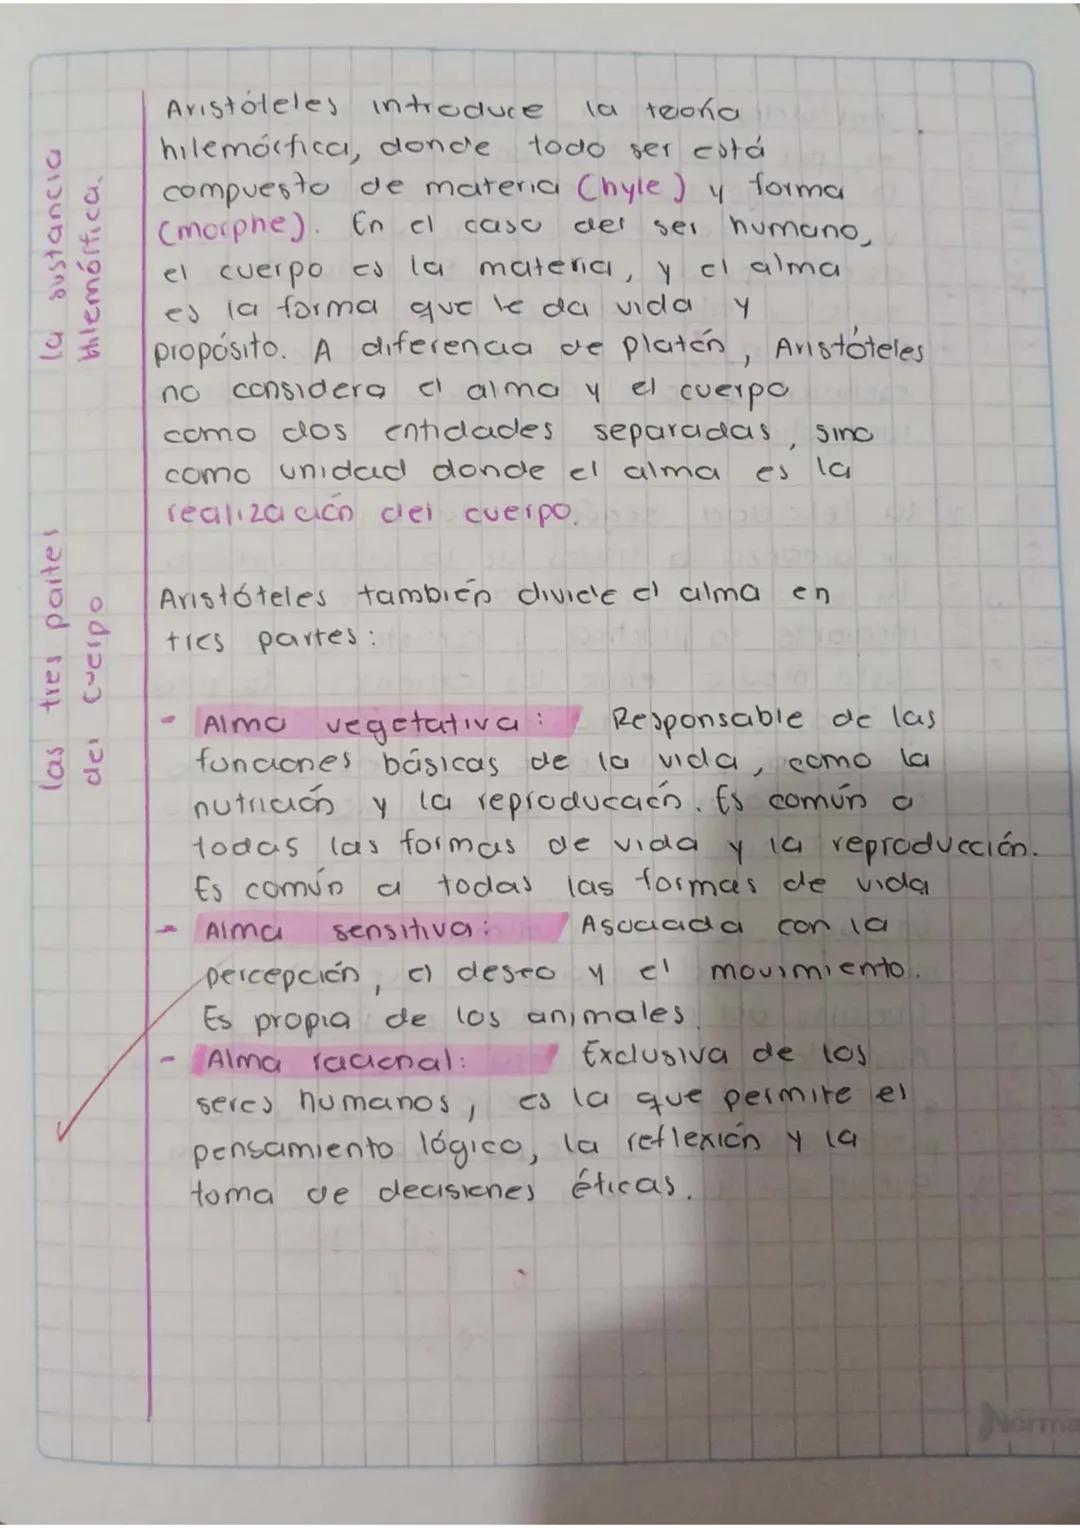 la sustancia
hilemórfica.
Aristóteles introduce la teoría
hilemórfica, donde todo ser está
compuesto de materia (hyle) y forma
(morphe). En el caso del ser humano,
el cuerpo es la materia, y el alma
es la forma que le da vida y
propósito. A diferencia de platón, Aristóteles
no considera el alma y el cuerpo
como dos entidades separadas, sino
como unidad donde el alma es la
realización del cuerpo.
las tres partes
del cuerpo
Aristóteles también divide el alma en
tres partes:
- Alma vegetativa: Responsable de las
funciones básicas de la vida, como la
nutrición y la reproducción. Es común a
todas las formas de vida y la reproducción.
Es común a todas las formas de vida
- Alma sensitiva: Asociada con la
percepción, el deseo y el movimiento.
Es propia de los animales.
- Alma racional: Exclusiva de los
seres humanos, es la que permite el
pensamiento lógico, la reflexión y la
toma de decisiones éticas.
Norma